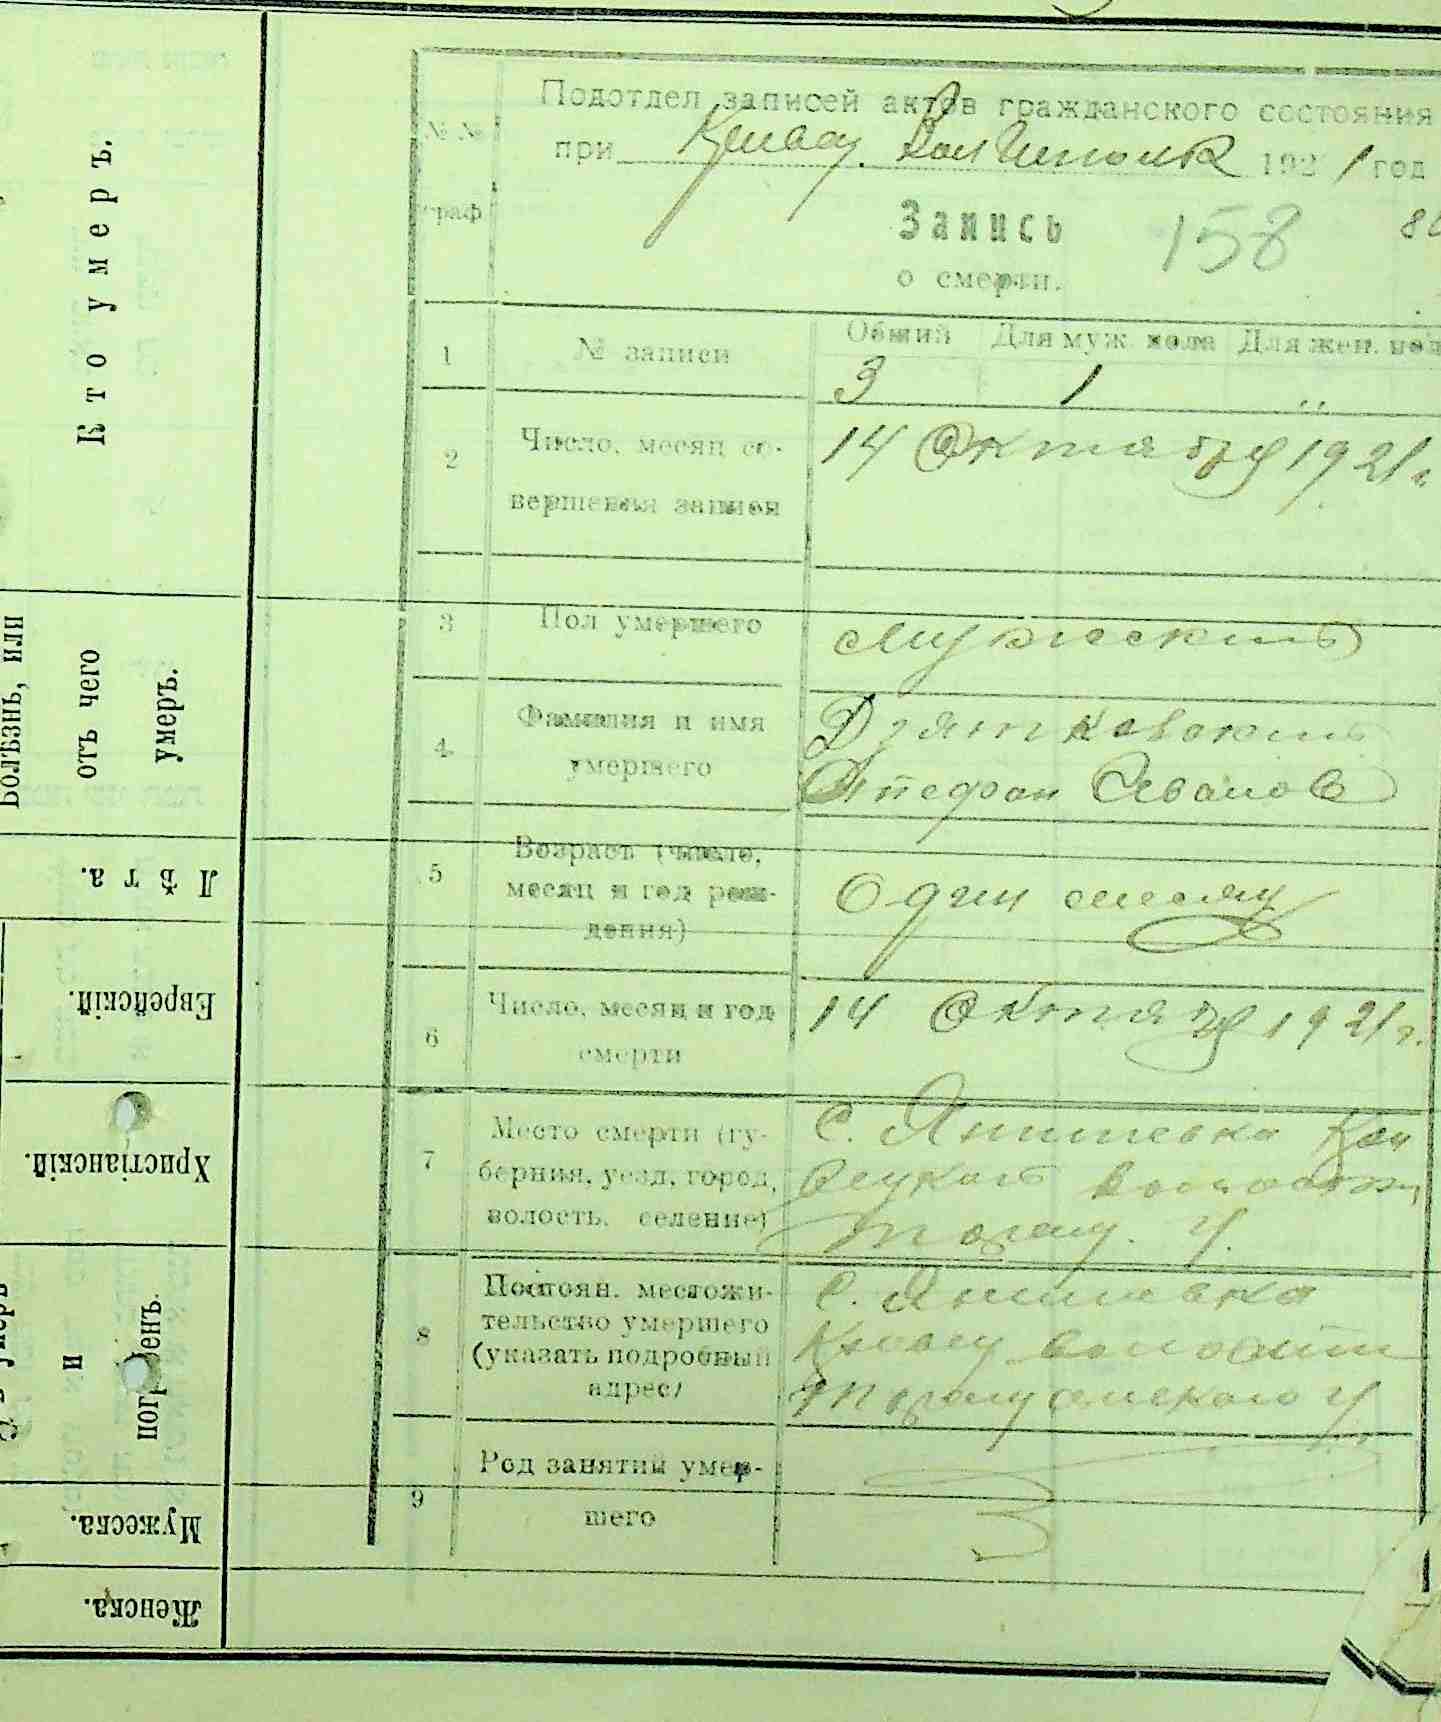 Кто умеръ.
Болѣзнь, или
отъ чего
умеръ.
Лѣта.
Еврейскій.
Христіанскій.
умеръ
и
погребенъ.
Мужеска.
Женска.
№ №
граф
Подотдел записей актов гражданского состояния
при 1921 год
Запись 158
о смерти.
1 № записи Общий Для муж. пола Для жен. пол
3 1 "
2 Число, месяц со-
вершения записи
14 Октября 1921 г.
3 Пол умершего Мужескъ
4 Фамилия и имя
умершего
Дзятковскитъ
Стефан Иванов
5 Возраст (число,
месяц и год рож-
дения)
Один месяц
6 Число, месяц и год
смерти
14 Октября 1921 г.
7 Место смерти (гу-
берния, уезд, город,
волость, селение)
С. Янишевка
волости
У.
8 Постоян. местожи-
тельство умершего
(указать подробный
адрес)
С. Янишевка
волости
9 Род занятий умер-
шего